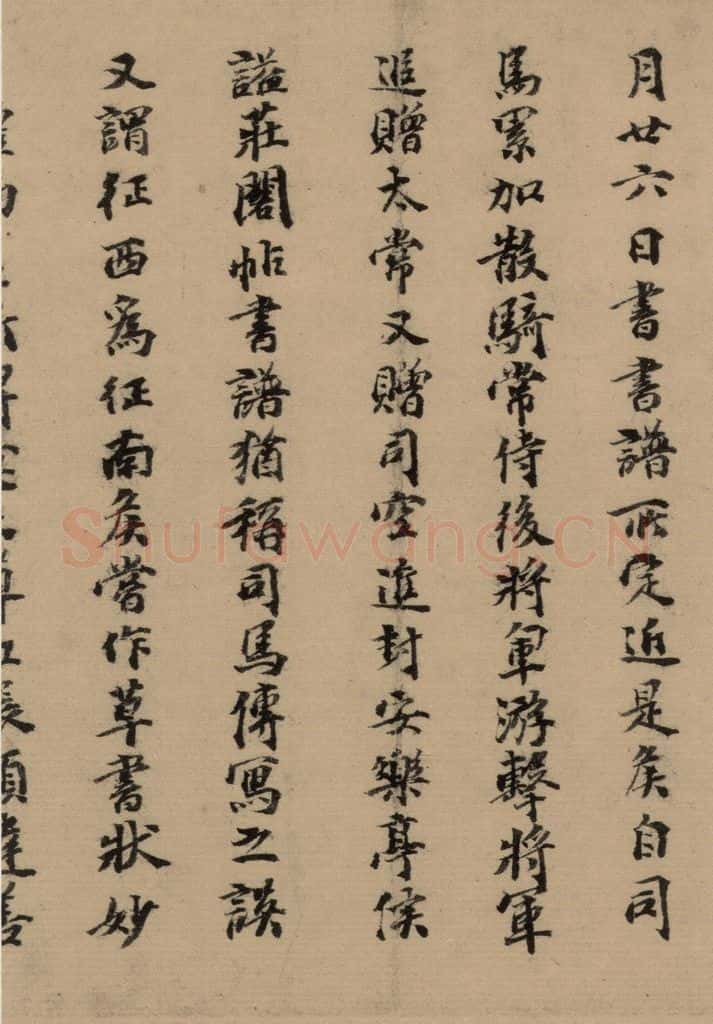 月廿六日書書譜所定近是矦自司
馬累加散騎常侍後將軍游擊將軍
追贈太常又贈司空進封安樂亭侯
謚莊閣帖書譜猶稱司馬傳寫之誤
又謂征西爲征南矦嘗作草書狀妙
Shufawang.CN